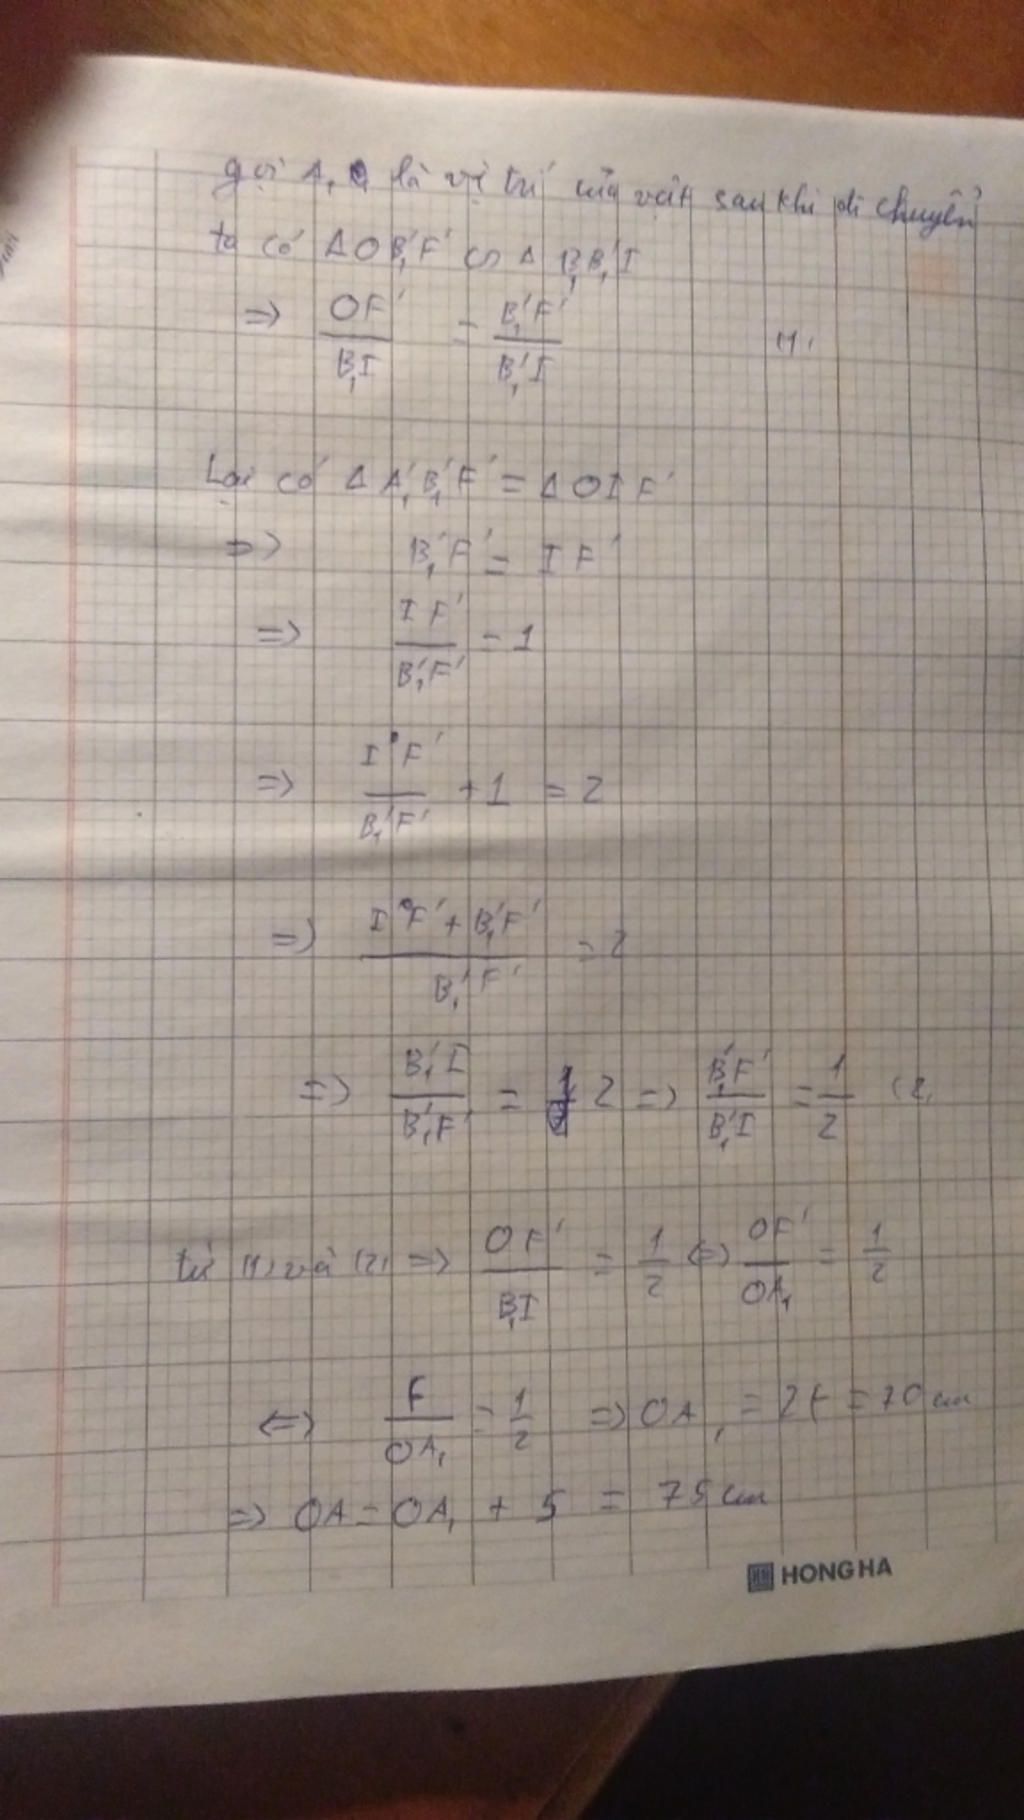 gọi A₁ là vị trí của vật sau khi di chuyển
ta có ΔOB₁'F' ∽ Δ B₁B₁'I
=> OF'/B₁I = B₁'F'/B₁'I (1)
Lại có Δ A₁'B₁'F' = ΔOIF'
=> B₁'F' = IF'
=> IF'/B₁'F' = 1
=> IF'/B₁'F' + 1 = 2
=> (IF' + B₁'F')/B₁'F' = 2
=> B₁'I/B₁'F' = 2 => B₁'F'/B₁'I = 1/2 (2)
từ (1) và (2) => OF'/B₁I = 1/2 <=> OF'/OA₁ = 1/2
<=> F/OA₁ = 1/2 => OA₁ = 2f = 70 cm
=> OA = OA₁ + 5 = 75 cm
HONG HA